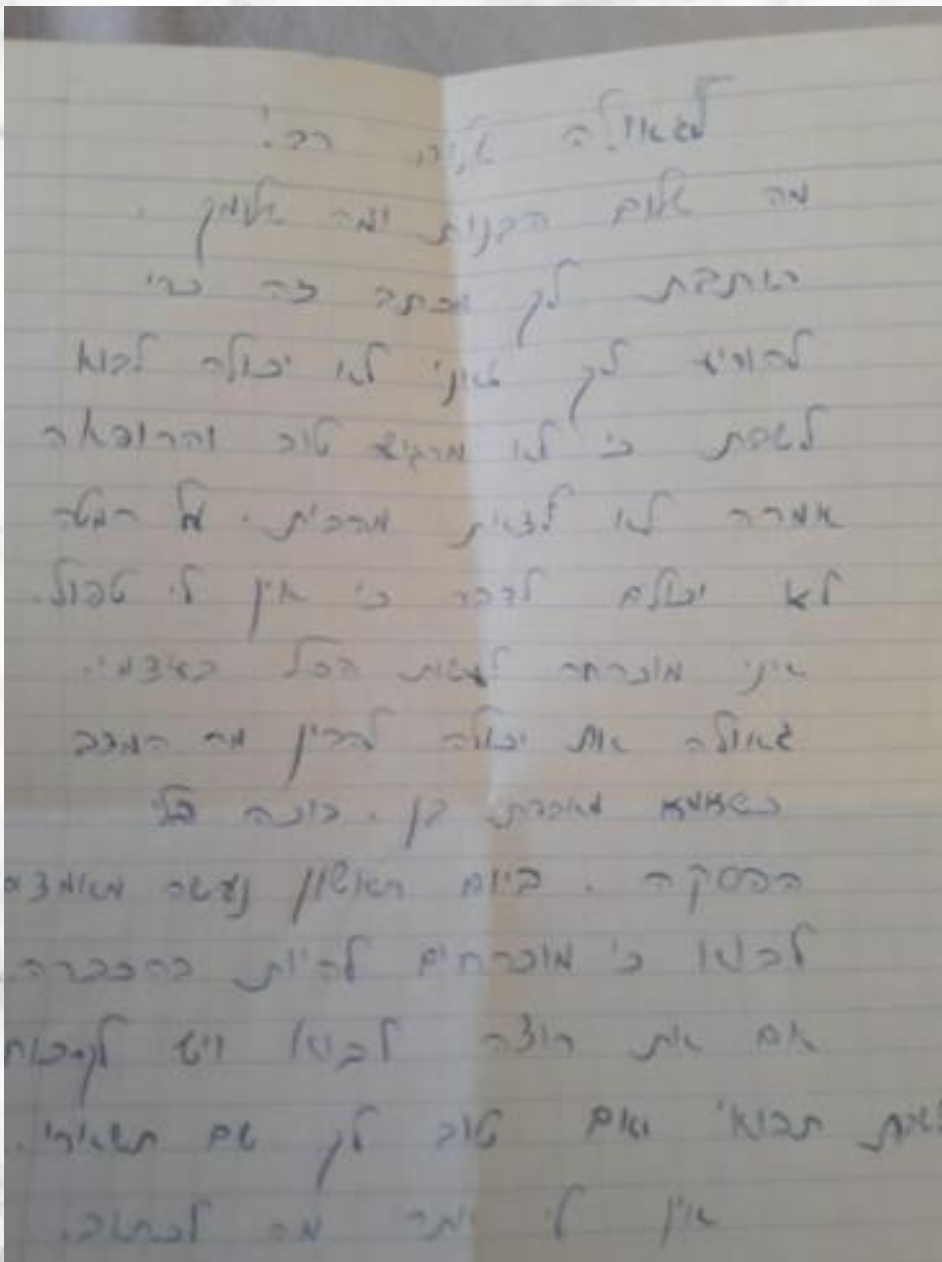 לגאולה שלום רב!
מה שלום הבנות ומה שלומך.
כותבת לך מכתב זה כדי
להודיע לך שאיני לא יכולה לבוא
לשבת כי לא מרגיש טוב והרופאה
אמרה לא לצאת מהבית. על המטה
לא יכולים לדבר כי אין לי טפול.
איני מוכרחה לעשות הכל בעצמי.
גאולה את יכולה להבין מה המצב
כשאמא מאבדת בן. בוכה בלי
הפסקה. ביום ראשון נעשה מאמצים
לבוא כי מוכרחים להיות בהזכרה.
אם את רוצה לבוא ויש לך כוח
לשבת תבואי ואם טוב לך שם תשארי.
אין לי יותר מה לכתוב.